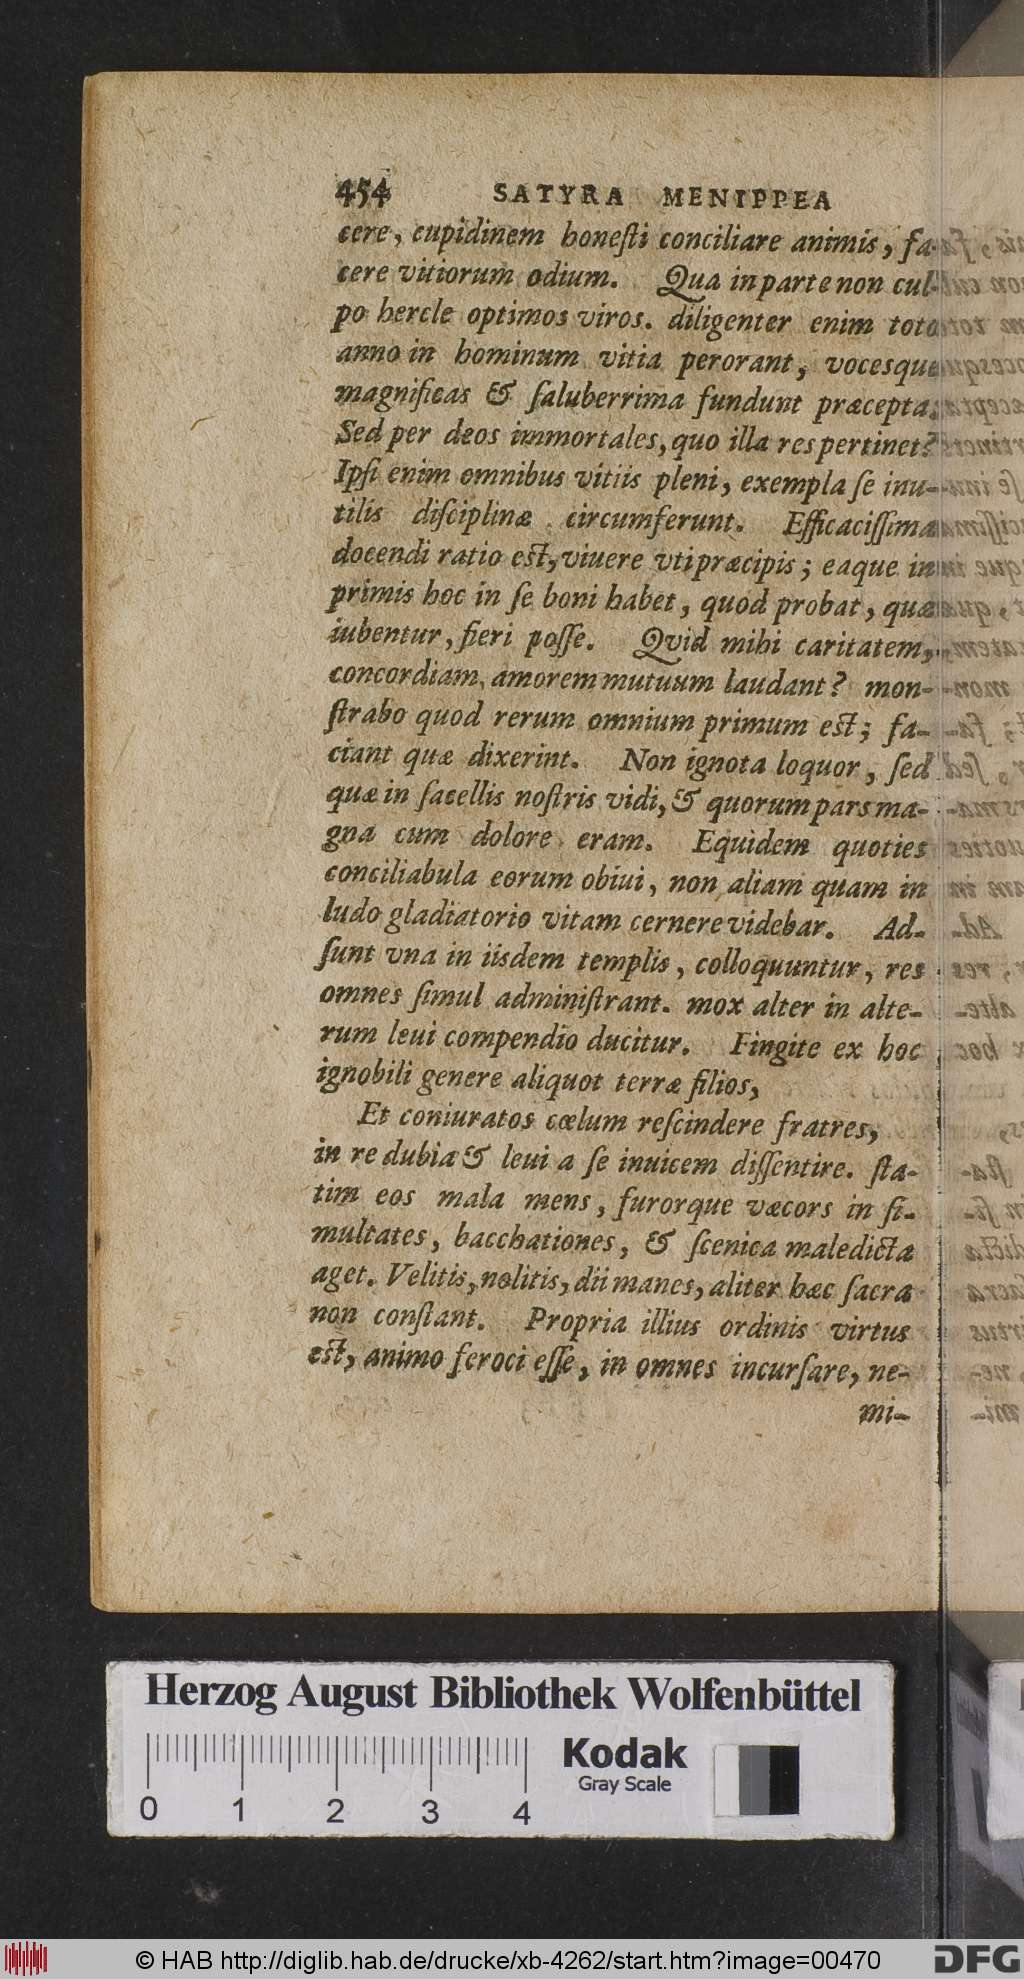 454 SATYRA MENIPPEA
cere, cupidinem honeſti conciliare animis, fa-
cere vitiorum odium. Qua in parte non cul-
po hercle optimos viros. diligenter enim toto
anno in hominum vitia perorant, vocesque
magnificas & ſaluberrima fundunt præcepta.
Sed per deos immortales, quo illa res pertinet?
Ipſi enim omnibus vitiis pleni, exempla ſe inu-
tilis diſciplinæ circumferunt. Efficaciſſima
docendi ratio est, viuere vti præcipis; eaque in
primis hoc in ſe boni habet, quod probat, quæ
iubentur, fieri poſſe. Qvid mihi caritatem,
concordiam, amorem mutuum laudant? mon-
ſtrabo quod rerum omnium primum est; fa-
ciant quæ dixerint. Non ignota loquor, ſed
quæ in ſacellis noſtris vidi, & quorum pars ma-
gna cum dolore eram. Equidem quoties
conciliabula eorum obiui, non aliam quam in
ludo gladiatorio vitam cernere videbar. Ad-
ſunt vna in iisdem templis, colloquuntur, res
omnes ſimul adminiſtrant. mox alter in alte-
rum leui compendio ducitur. Fingite ex hoc
ignobili genere aliquot terræ filios,
Et coniuratos cœlum reſcindere fratres,
in re dubia & leui a ſe inuicem diſſentire. ſta-
tim eos mala mens, furorque væcors in ſi-
multates, bacchationes, & ſcenica maledicta
aget. Velitis, nolitis, dii manes, aliter hæc ſacra
non conſtant. Propria illius ordinis virtus
est, animo feroci eſſe, in omnes incurſare, ne-
mi-
Herzog August Bibliothek Wolfenbüttel
Kodak
Gray Scale
0 1 2 3 4
© HAB http://diglib.hab.de/drucke/xb-4262/start.htm?image=00470
DFG